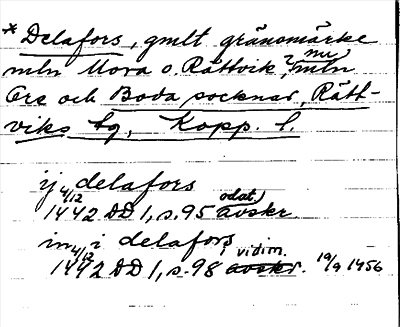 * Delafors, gmlt gränsmärke
mln Mora o. Rättvik, nu mln
Ore och Boda socknar, Rätt-
viks tg, Kopp. l.
ij delafors
4/12 1442 DD 1, s. 95 odat. avskr.
in i delafors
4/12 1442 DD 1, s. 98 avskr. i vidim. 19/9 1456